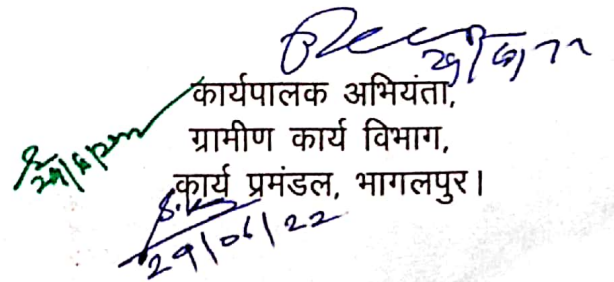 29/6/22
कार्यपालक अभियंता,
ग्रामीण कार्य विभाग,
कार्य प्रमंडल, भागलपुर।
29/06/22